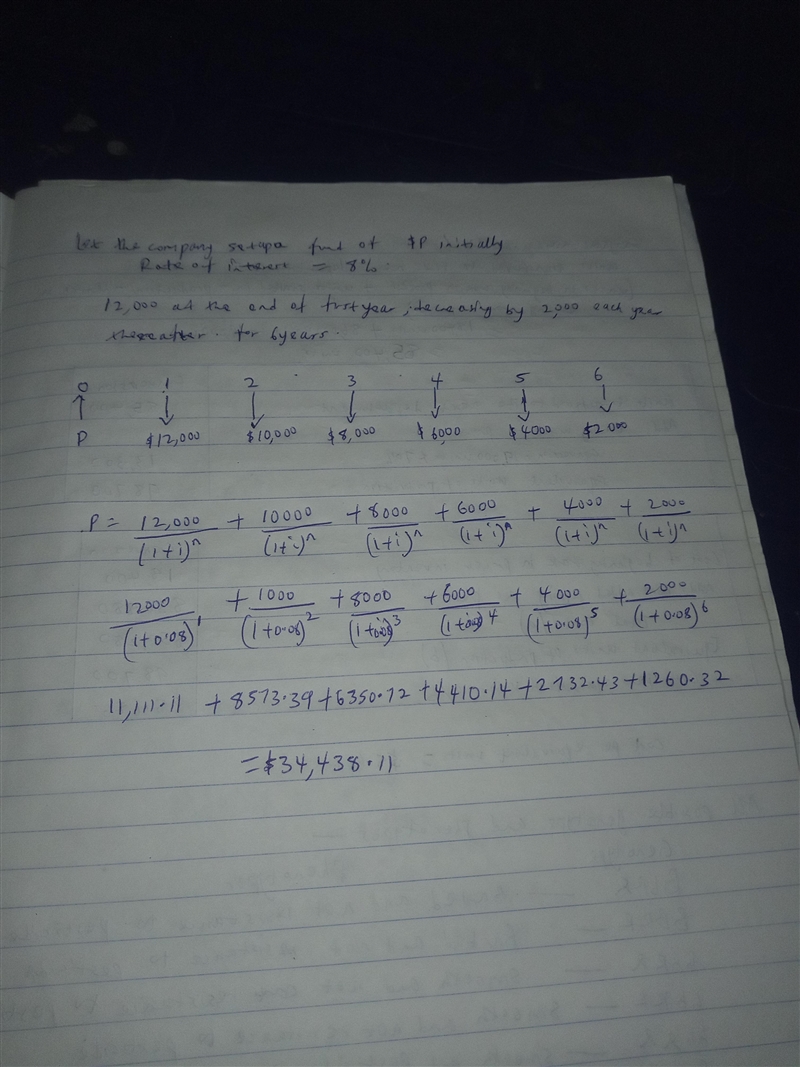 Let the company setup a fund of $P initially
Rate of interest = 8%.
12,000 at the end of first year, decreasing by 2,000 each year
thereafter. for 6 years.
0 1 2 3 4 5 6
↑ ↓ ↓ ↓ ↓ ↓ ↓
P $12,000 $10,000 $8,000 $6000 $4000 $2000
P = 12,000/(1+i)^n + 10000/(1+i)^n + 8000/(1+i)^n + 6000/(1+i)^n + 4000/(1+i)^n + 2000/(1+i)^n
12000/(1+0.08)^1 + 1000/(1+0.08)^2 + 8000/(1+0.08)^3 + 6000/(1+0.08)^4 + 4000/(1+0.08)^5 + 2000/(1+0.08)^6
11,111.11 + 8573.39 + 6350.72 + 4410.14 + 2732.43 + 1260.32
= $34,438.11